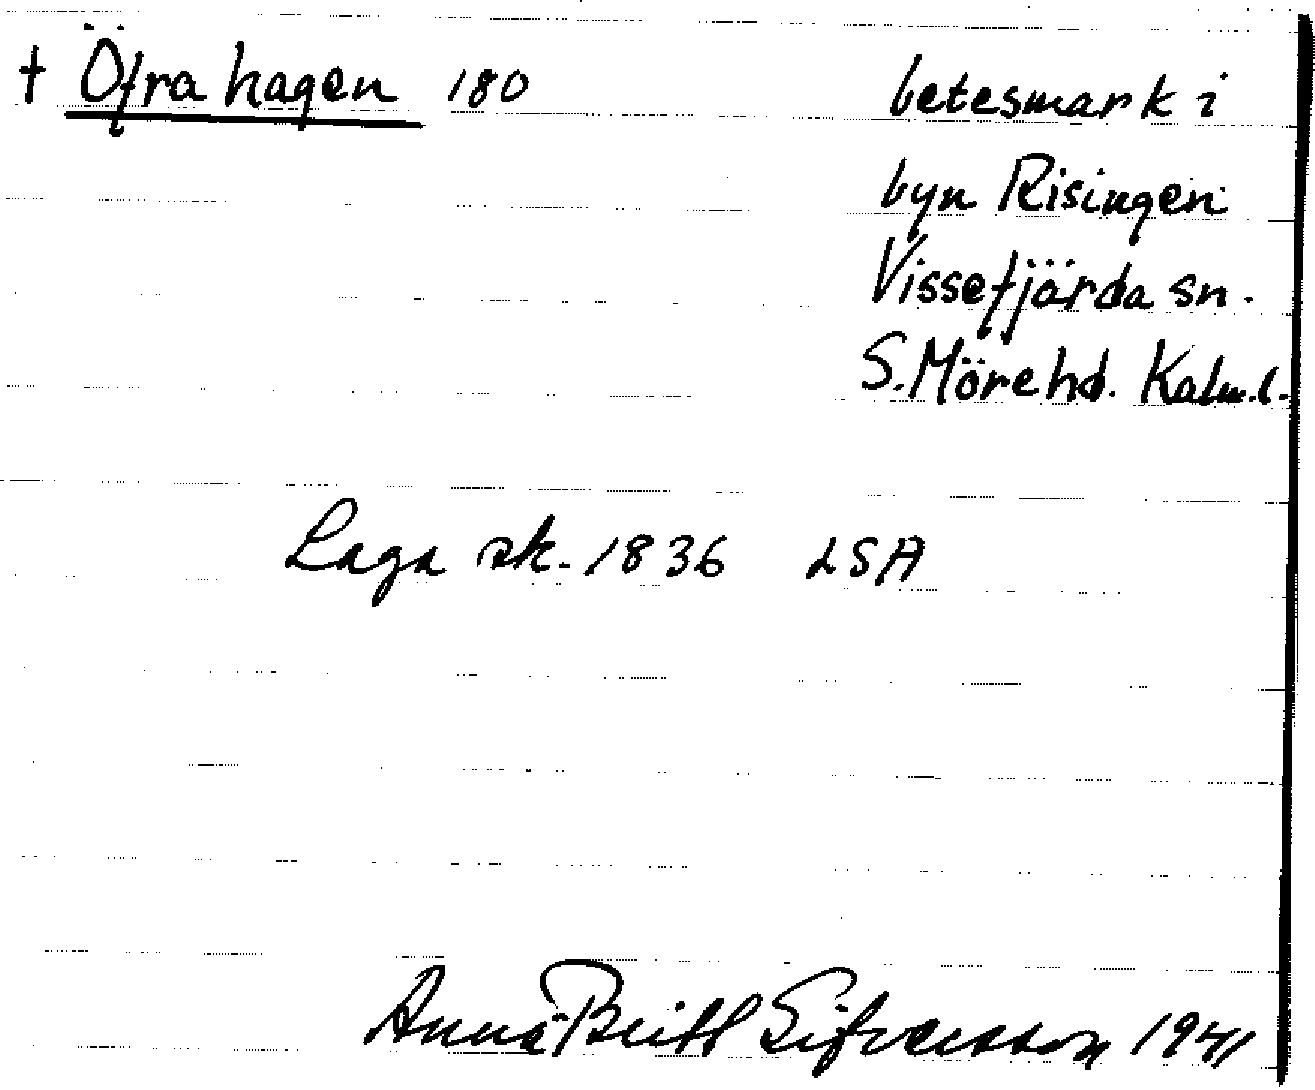 † Öfra hagen 180 betesmark i
byn Risingen
Vissefjärda sn.
S. Möre hd. Kalm. l.
Laga sk. 1836 LSA
Anna-Britt Sifvertsson 1941